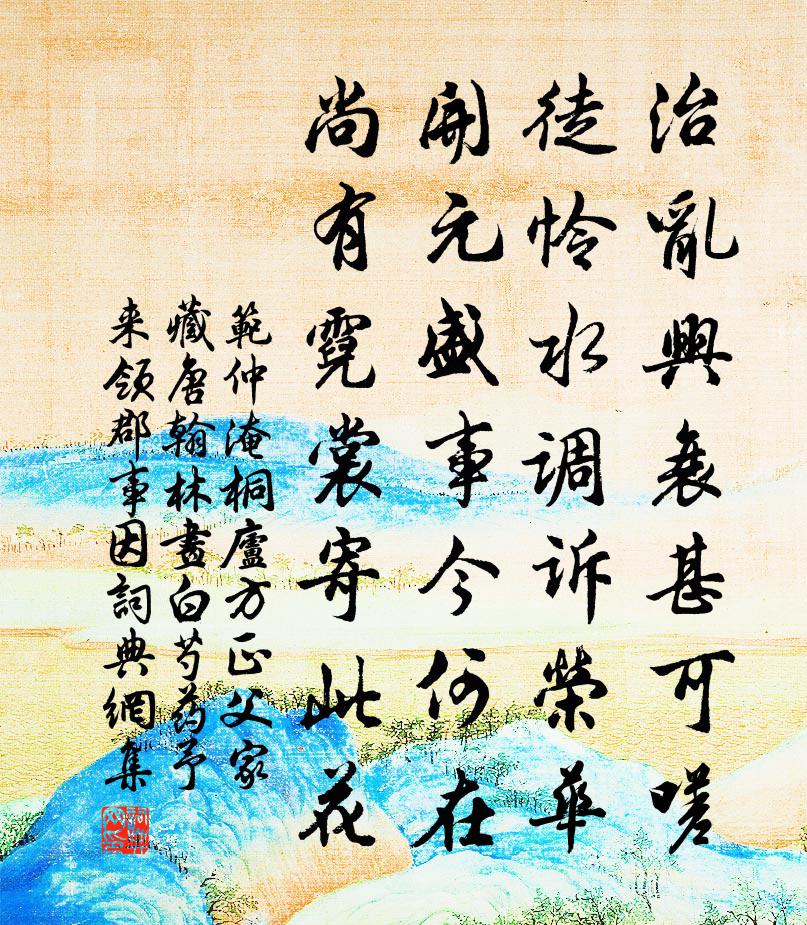 治亂興衰甚可嗟
徒怜水调诉榮華
開元盛事今何在
尚有霓裳寄此花
範仲淹桐廬方正父家
藏唐翰林畫白芍药予
来领郡事因詞典網集